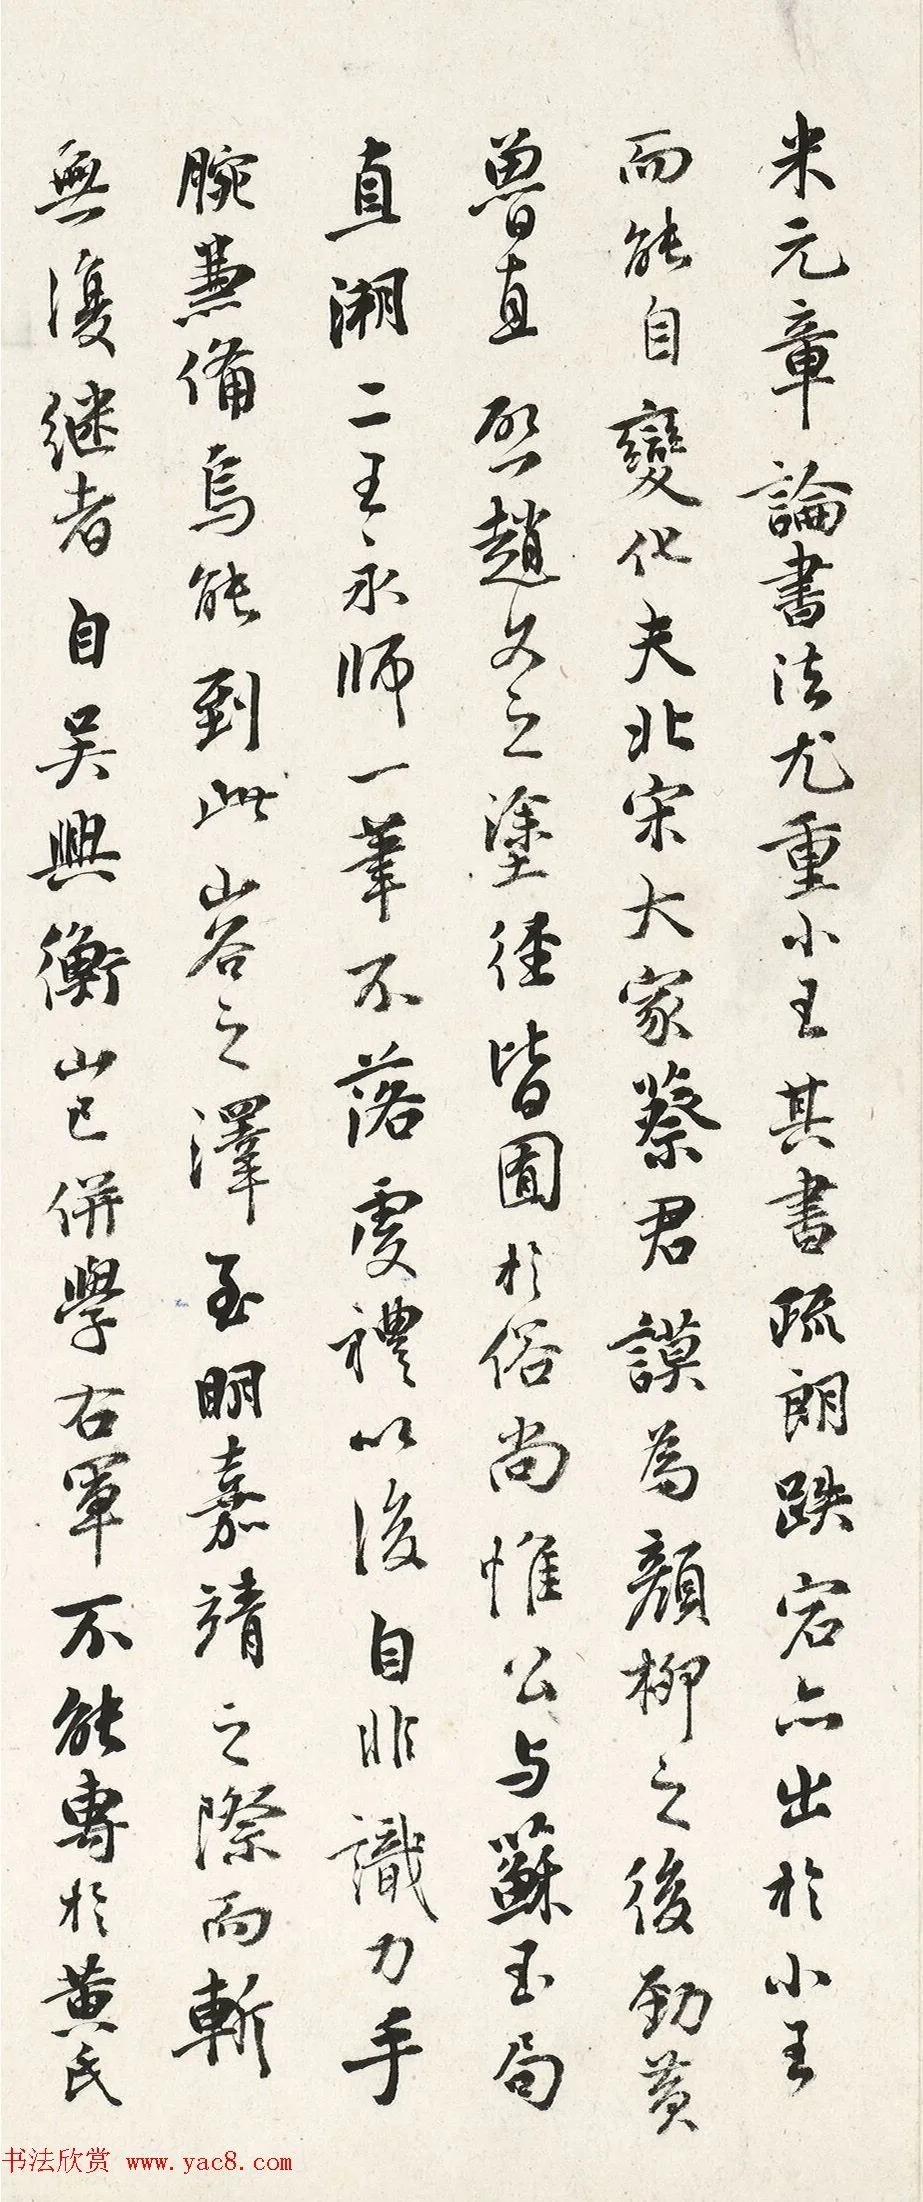 米元章論書法尤重小王其書疏朗跌宕亦出於小王
而能自變化夫北宋大家蔡君謨為顏柳之後勁黃
魯直啟趙文之塗徑皆囿於俗尚惟公与蘇玉局
直溯二王永師一筆不落虞禮以後自非識力手
腕兼備烏能到此山谷之澤至明嘉靖之際而斬
無復继者自吴興衡山已併學右軍不能專於黄氏
书法欣赏 www.yac8.com